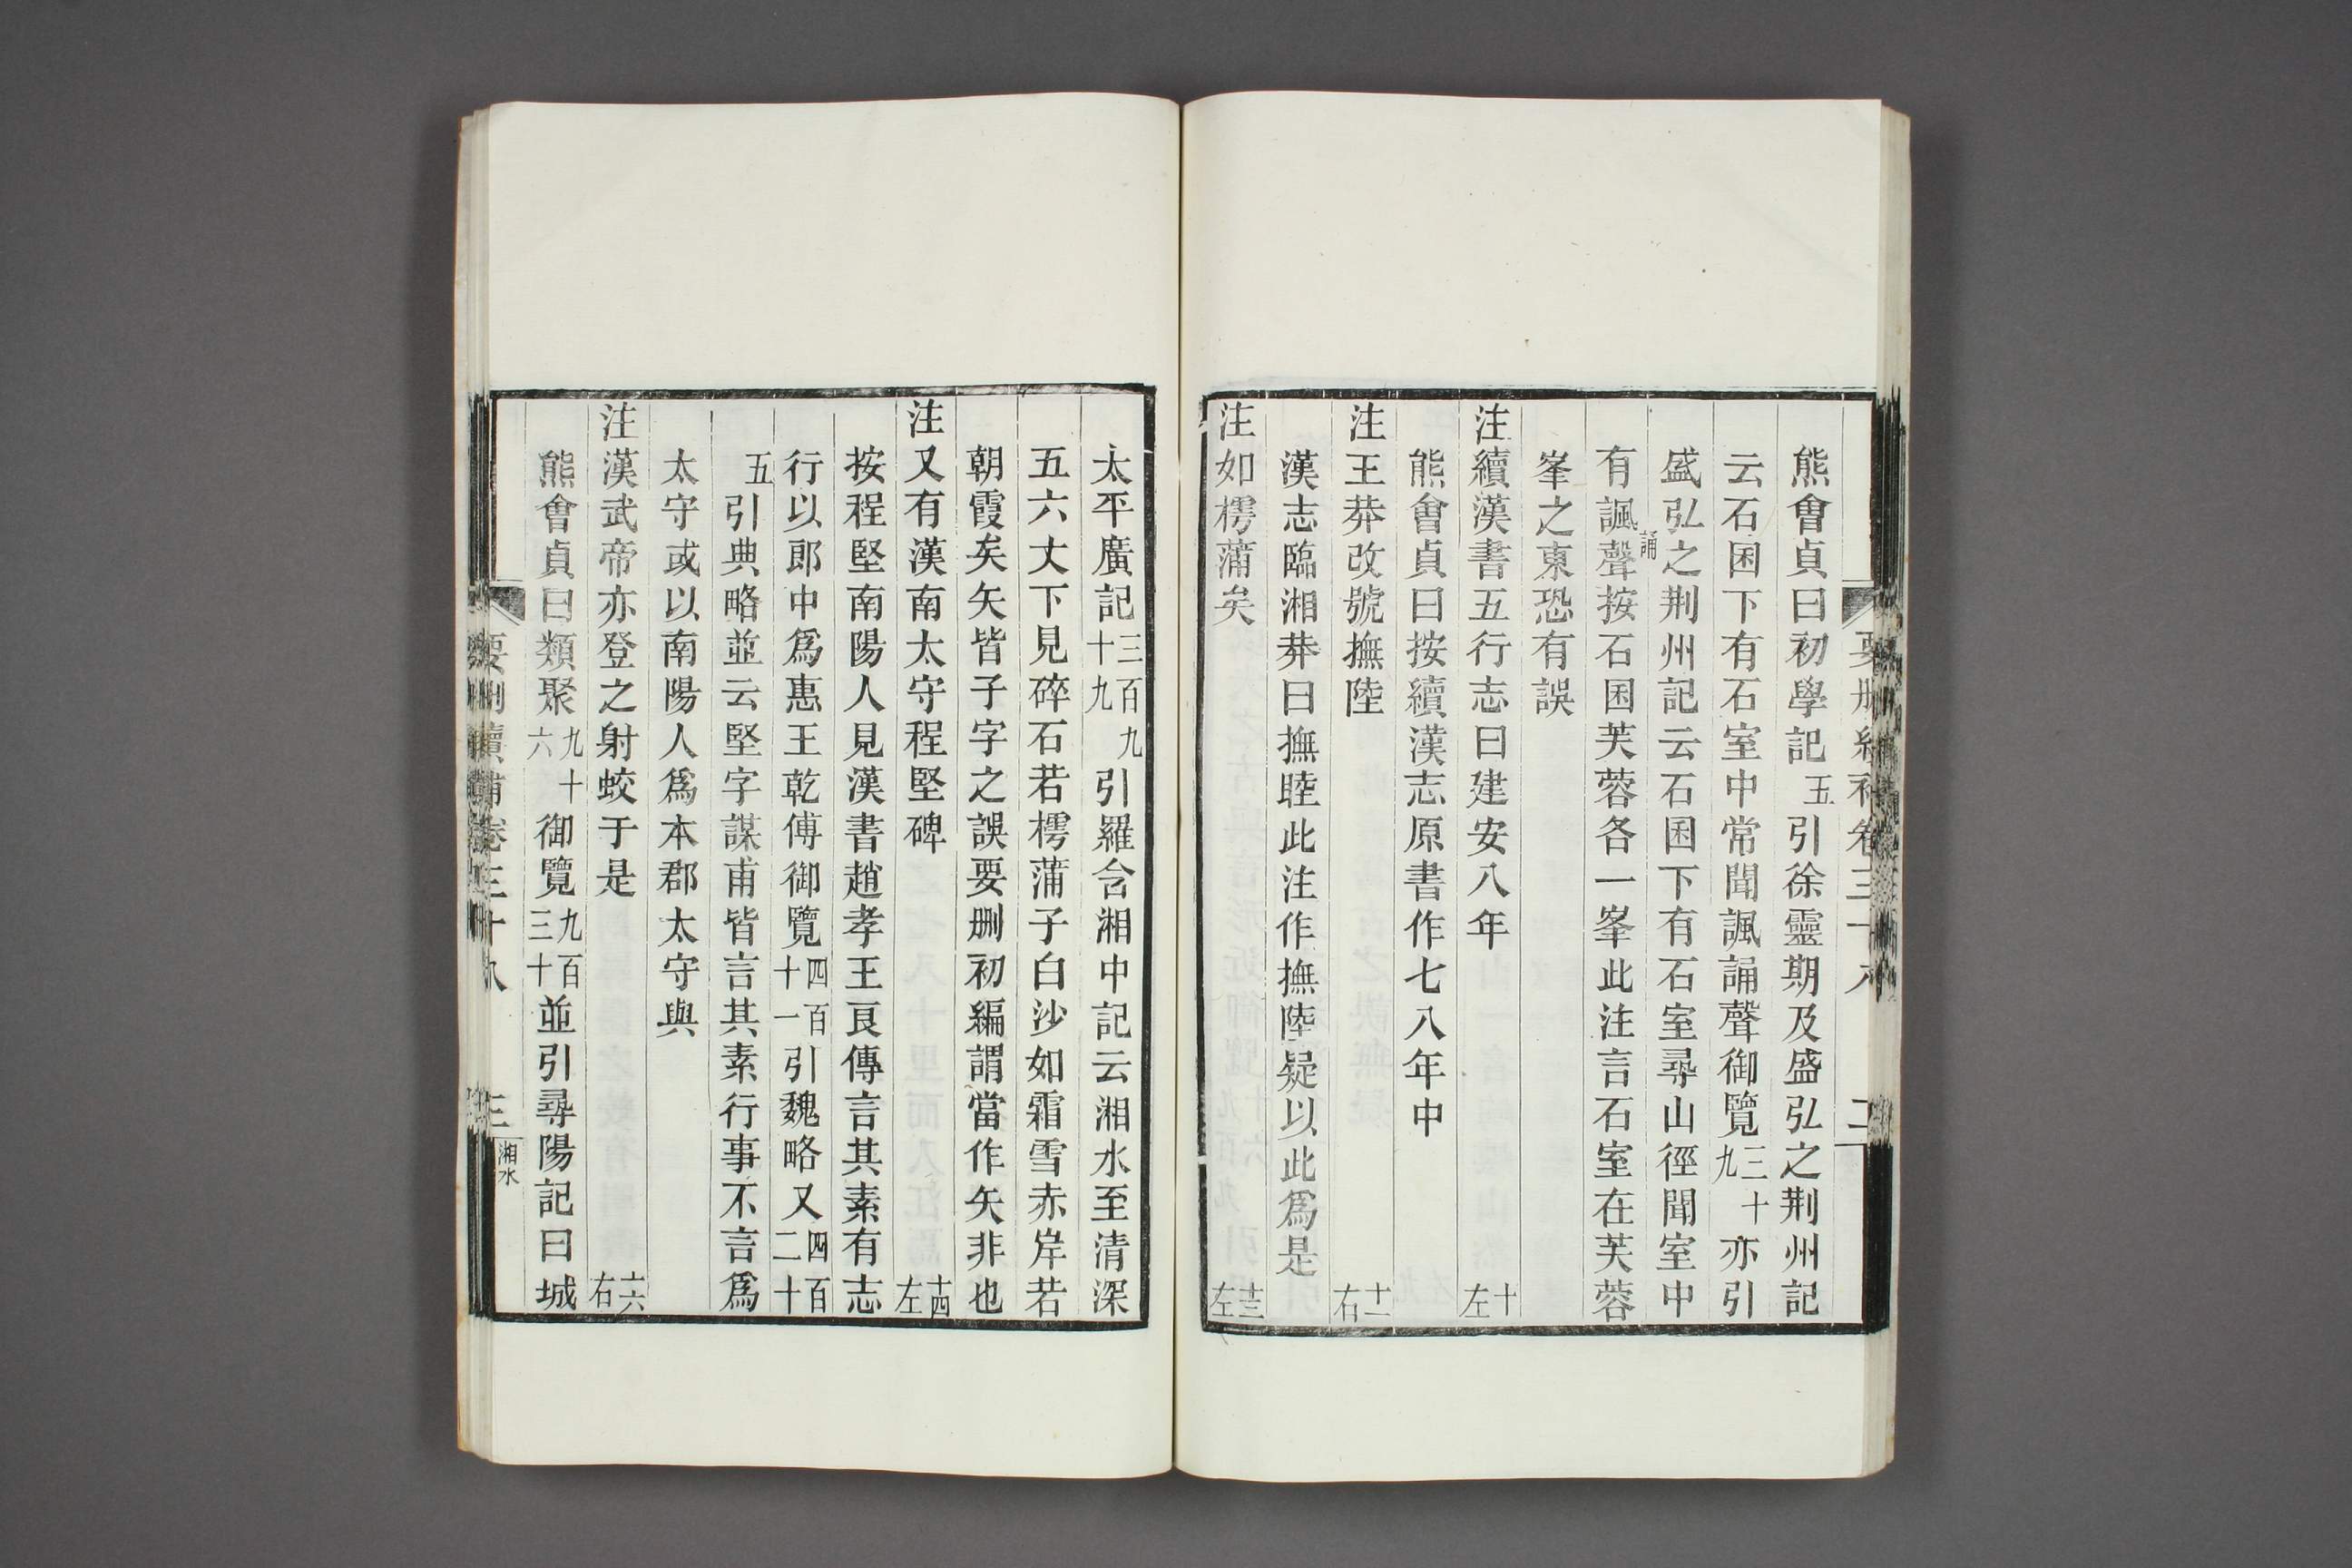 熊會貞曰初學記五引徐靈期及盛弘之荆州記
云石囷下有石室中常聞諷誦聲御覽三十九亦引
盛弘之荆州記云石囷下有石室尋山徑聞室中
有諷誦聲按石囷芙蓉各一峯此注言石室在芙蓉
峯之東恐有誤
注續漢書五行志曰建安八年 十左
熊會貞曰按續漢志原書作七八年中
注王莽改號撫陸 十一右
漢志臨湘莽曰撫睦此注作撫陸疑以此爲是
注如樗蒲矣 十三左
太平廣記三百九十九引羅含湘中記云湘水至清深
五六丈下見碎石若樗蒲子白沙如霜雪赤岸若
朝霞矣矢皆子字之誤要删初編謂當作矢非也
注又有漢南太守程堅碑 十四左
按程堅南陽人見漢書趙孝王良傳言其素有志
行以郎中爲惠王乾傅御覽四百十一引魏略又四百二十
五引典略並云堅字謀甫皆言其素行事不言爲
太守或以南陽人爲本郡太守與
注漢武帝亦登之射蛟于是 十六右
熊會貞曰類聚九十六御覽九百三十並引尋陽記曰城
要删續補卷三十八 三 湘水